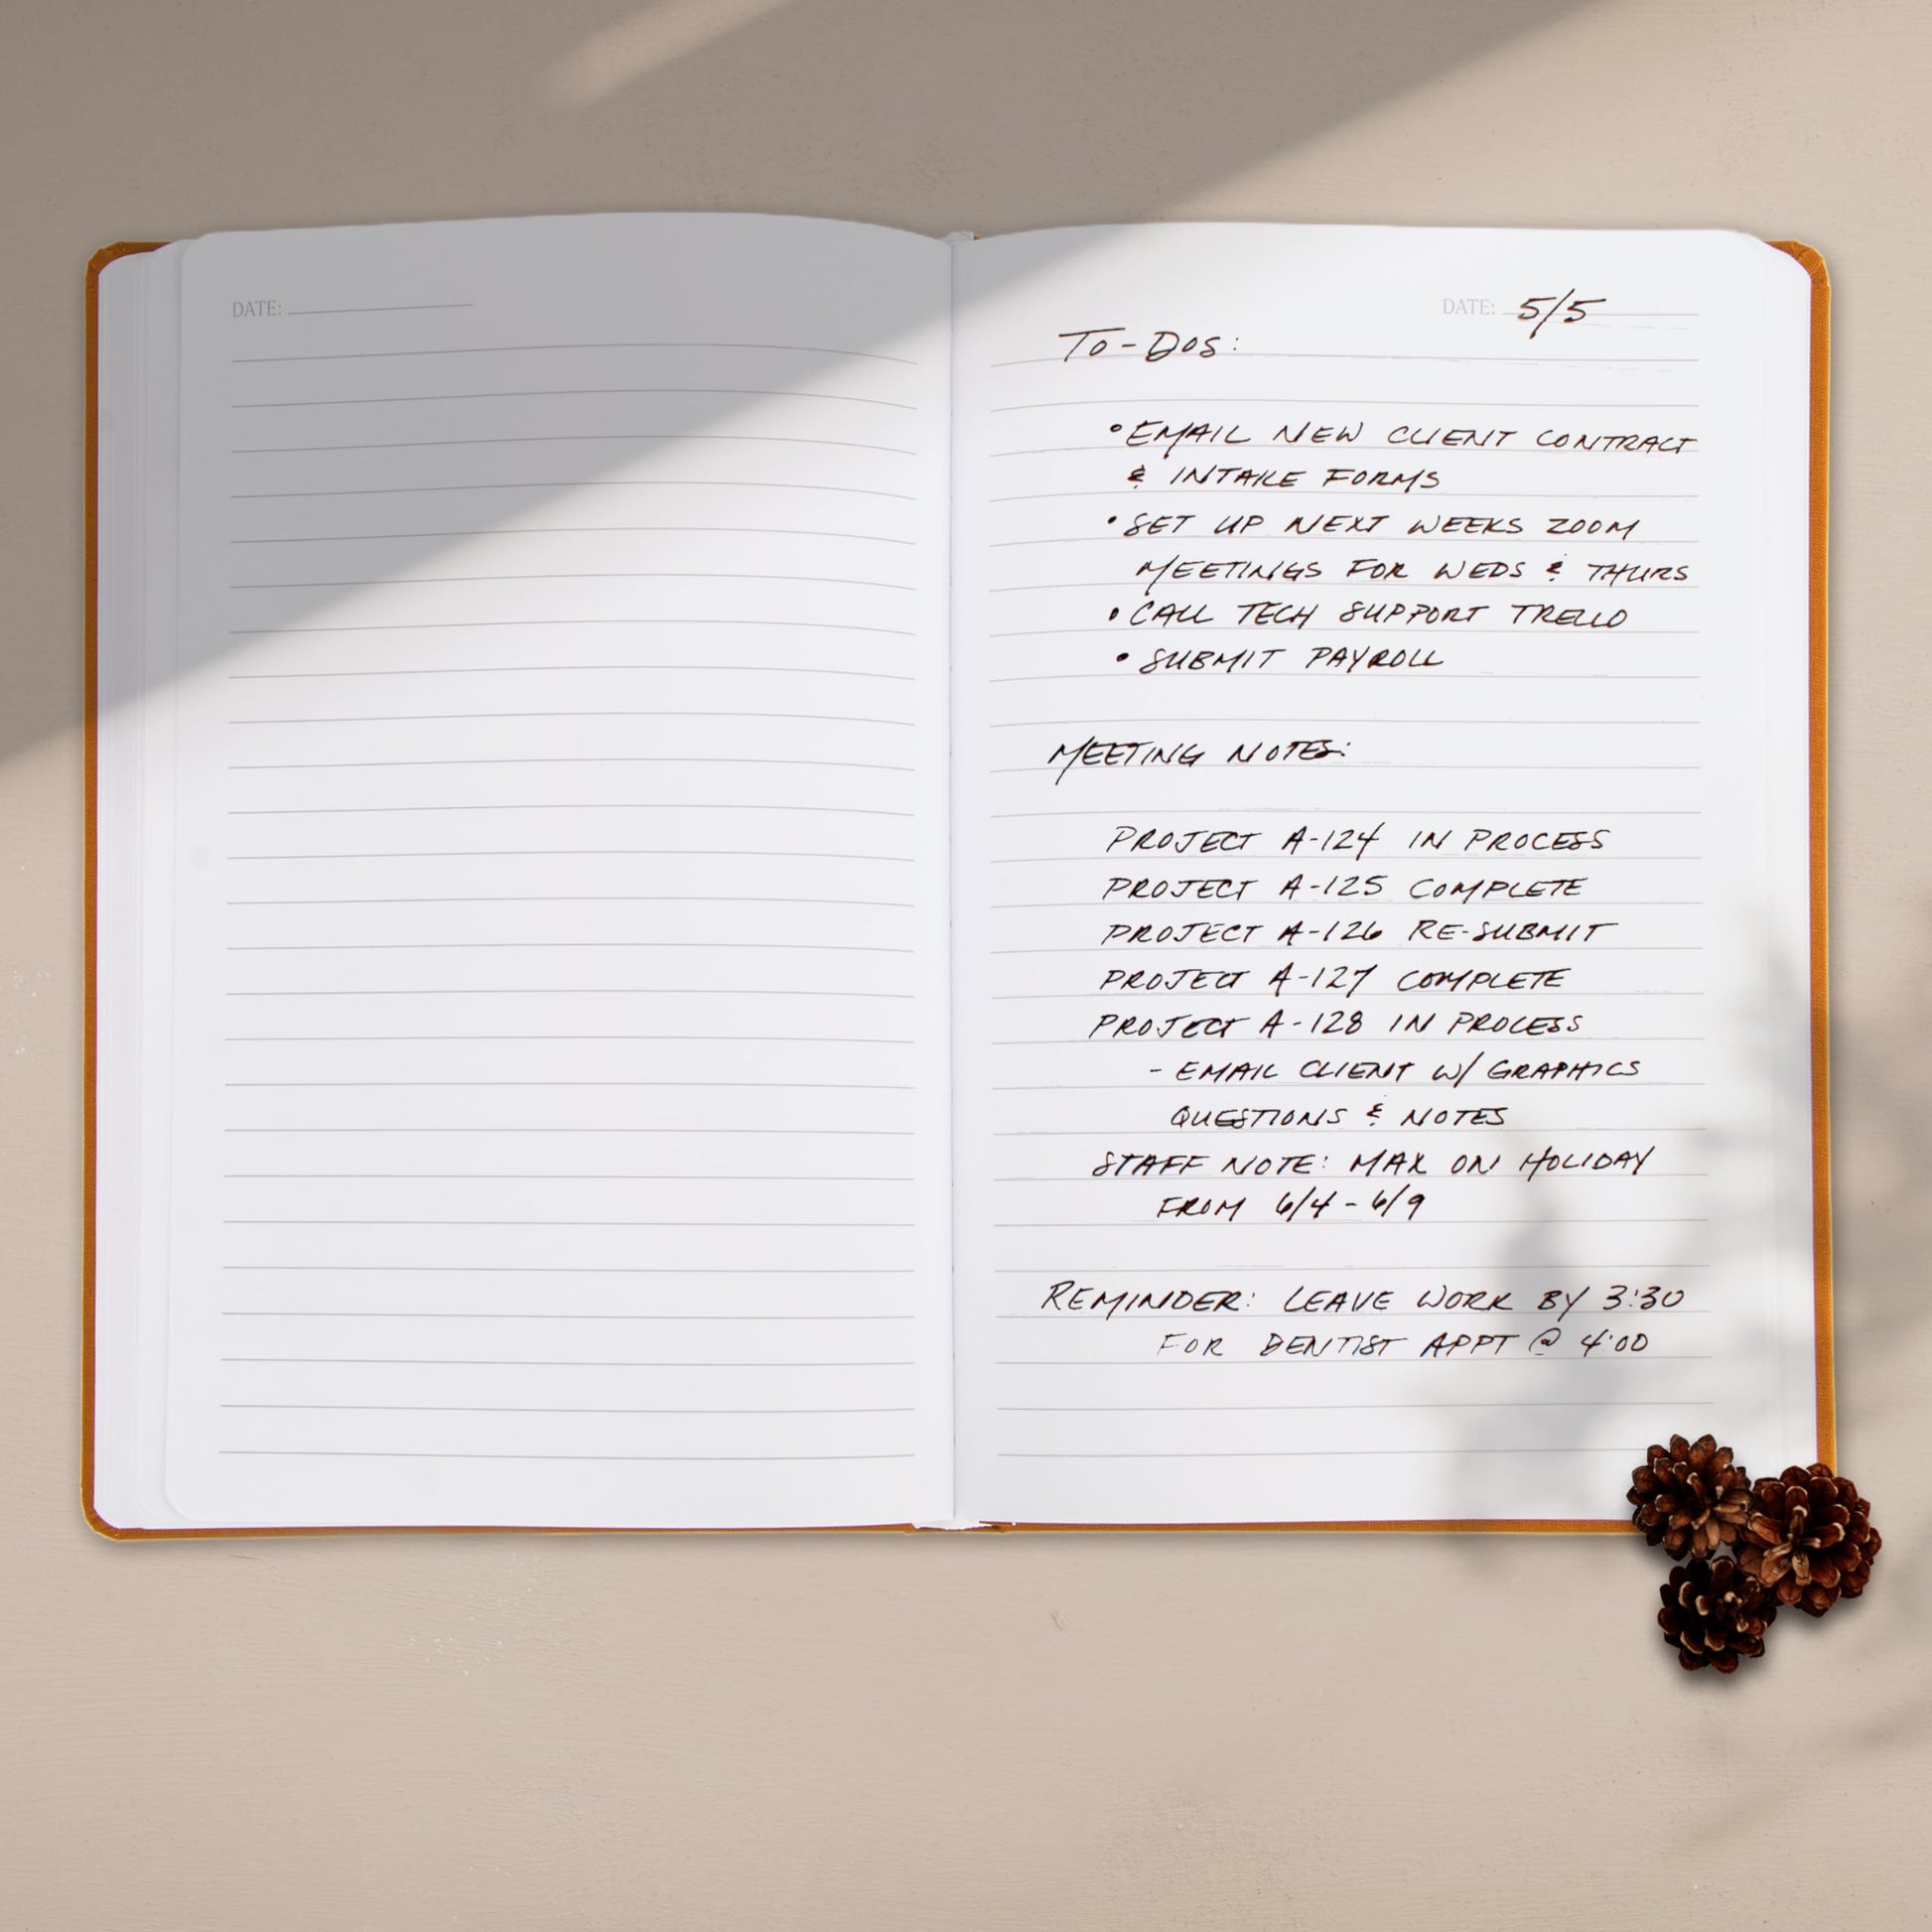 DATE:
DATE: 5/5
TO-DOS:
• EMAIL NEW CLIENT CONTRACT
& INTAKE FORMS
• SET UP NEXT WEEKS ZOOM
MEETINGS FOR WEDS & THURS
• CALL TECH SUPPORT TRELLO
• SUBMIT PAYROLL
MEETING NOTES:
PROJECT A-124 IN PROCESS
PROJECT A-125 COMPLETE
PROJECT A-126 RE-SUBMIT
PROJECT A-127 COMPLETE
PROJECT A-128 IN PROCESS
- EMAIL CLIENT W/ GRAPHICS
QUESTIONS & NOTES
STAFF NOTE: MAX ON HOLIDAY
FROM 6/4 - 6/9
REMINDER: LEAVE WORK BY 3:30
FOR DENTIST APPT @ 4:00